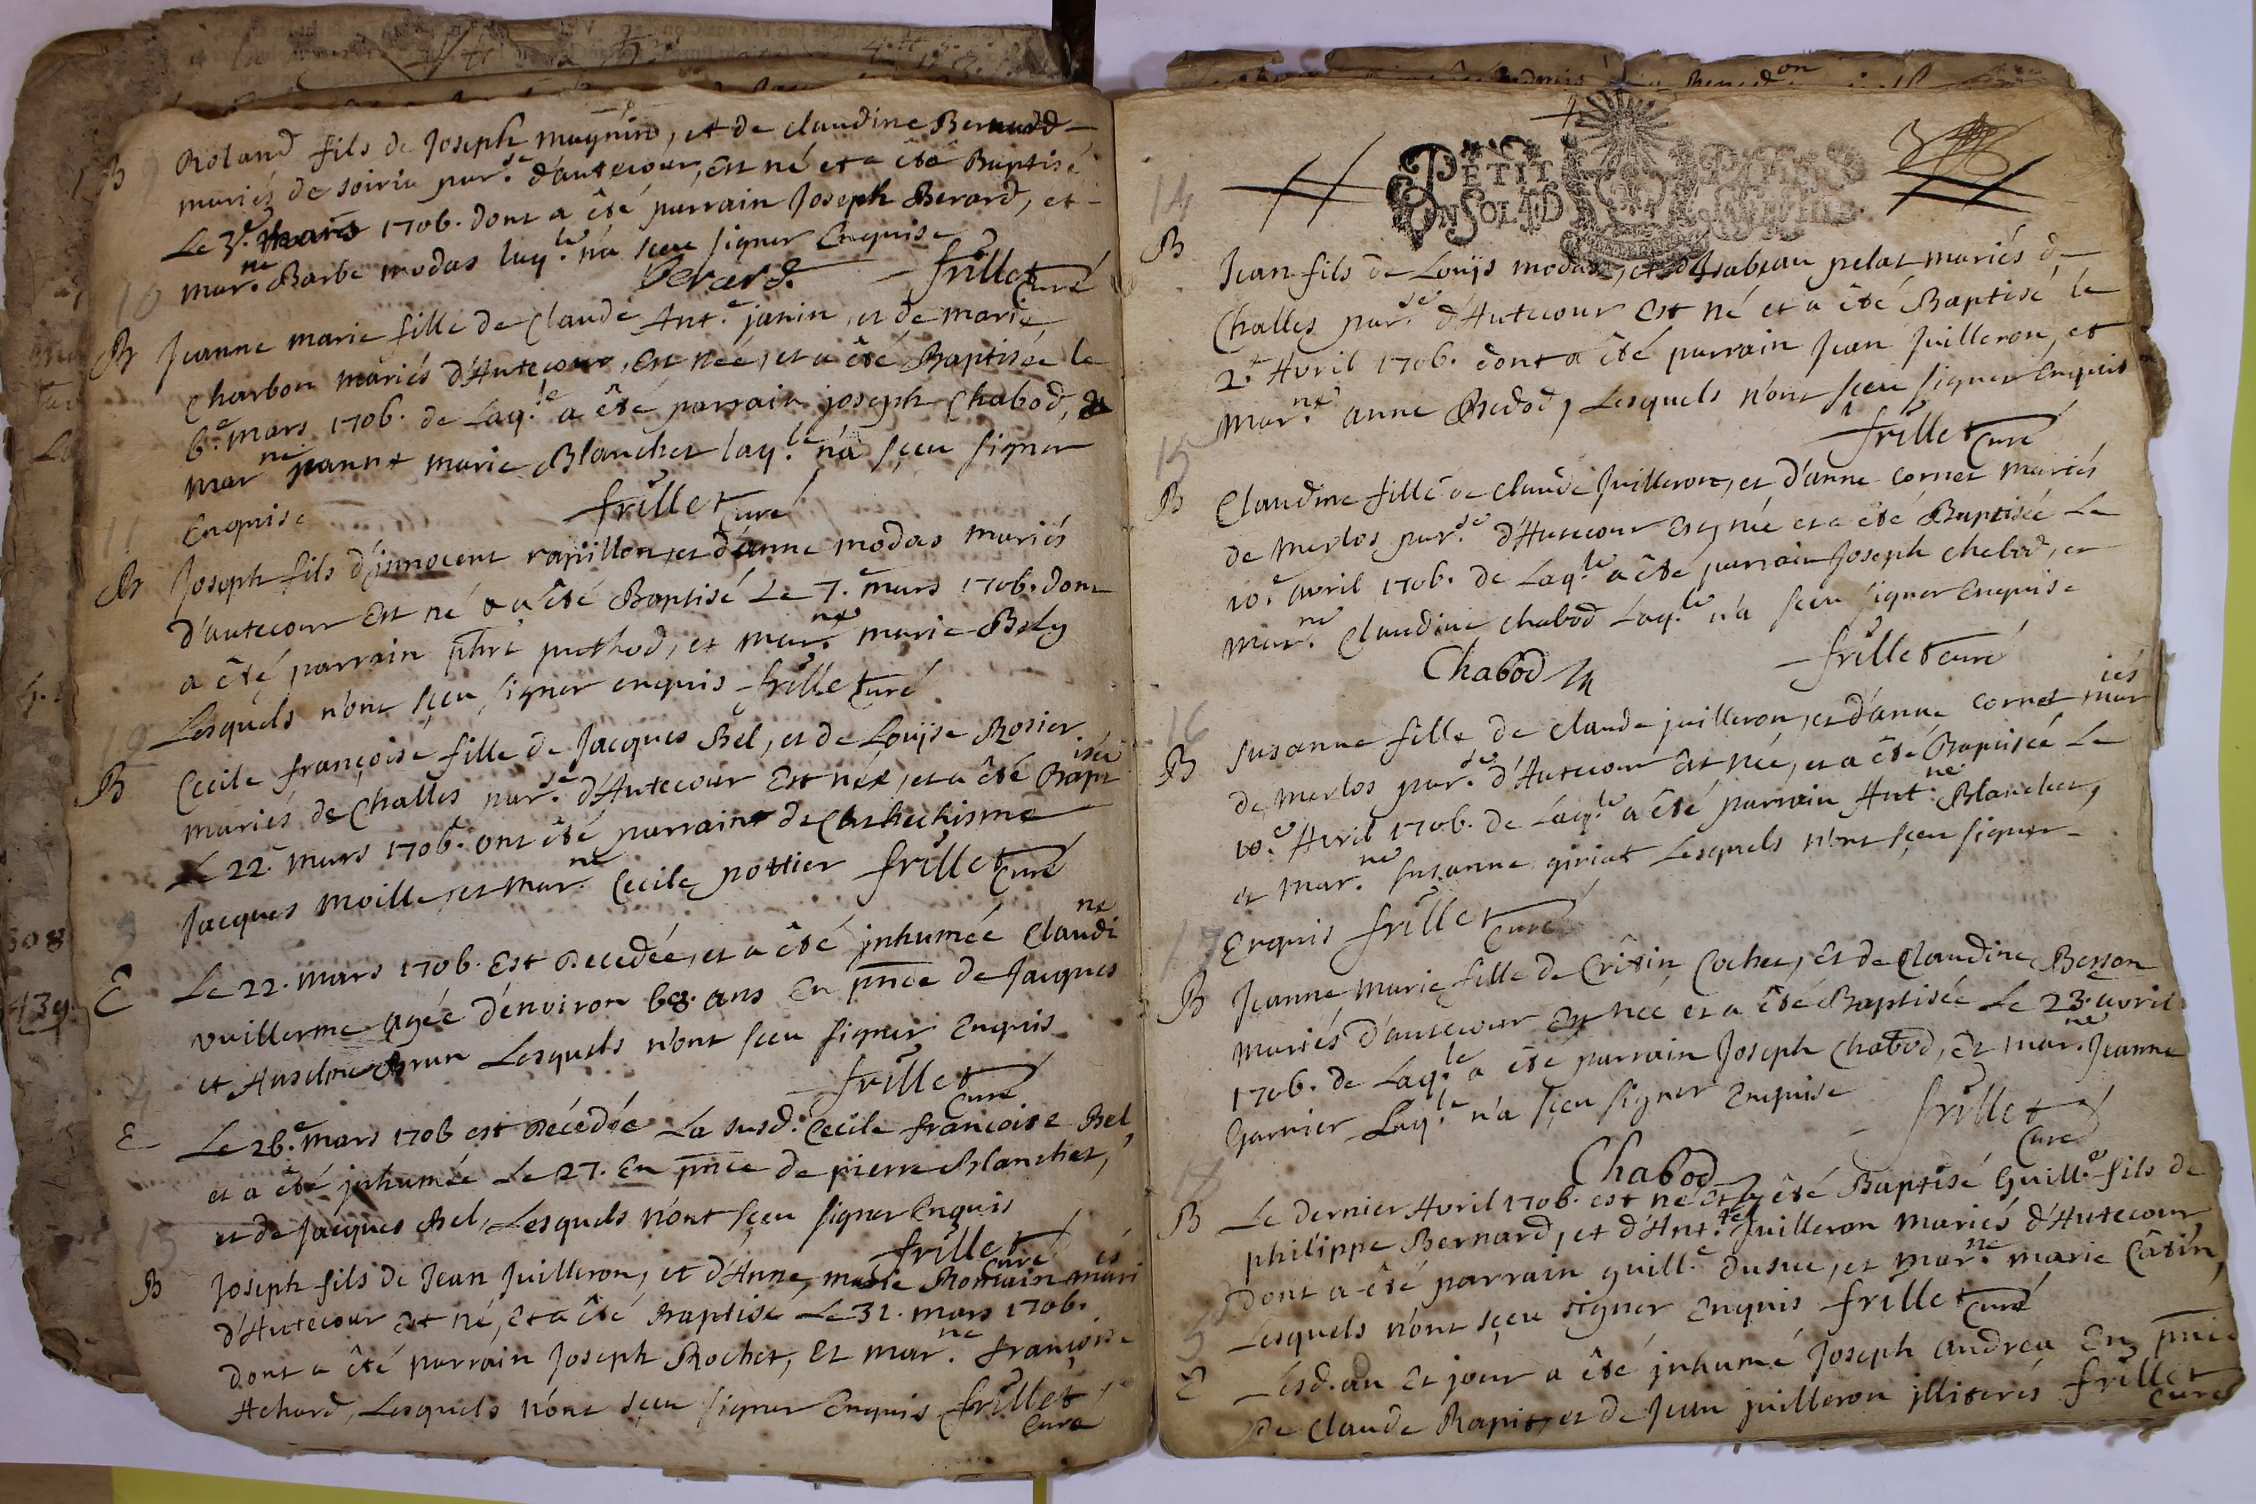 B Roland fils de Joseph magnin, et de claudine Bernard
mariés de soiria par.se d'autecour, est né et a êté Baptisé
Le 3.e mars 1706. dont a êté parrain Joseph Berard, et
mar.ne Barbe modas laq.le n'a sçeu signer Enquise
Berard. frillet Curé
10
B Jeanne marie fille de Claude Ant.e janin, et de marie
Charbon mariés d'Autecour, Est née, et a êté Baptisée le
6.e mars 1706. de Laq.le a êté parrain joseph Chabod, &
mar.ne jeanne marie Blanchet laq.le n'a sçeu signer
Enquise frillet Curé
11
B Joseph fils d'jnnocent rapillon, et d'anne modas mariés
d'autecour Est né & a êté Baptisé Le 7.e mars 1706. dont
a êté parrain phrt puthod, et mar.ne marie Bely
Lesquels n'ont sçeu signer enquis frillet Curé
12
B Cecile françoise fille de Jacques Bel, et de Loüise Rosier
mariés de Challes par.se d'Autecour Est née, et a êté Baptisée
Le 22.e mars 1706. ont êté parrains de Chathechisme
Jacques moille, et mar.ne Cecile pottier frillet Curé
3
E Le 22. mars 1706. Est Decedée, et a êté jnhumée Claudine
vuillerme agée d'environ 68. ans En pnce de Jacques
et Anselme Brun Lesquels n'ont sçeu signer Enquis
frillet Curé
4
E Le 26.e mars 1706 est Décédée La susd. Cecile françoise Bel,
et a êté jnhumée Le 27. En pnce de pierre Blanchet,
et de Jacques Bel, Lesquels n'ont sçeu signer Enquis
frillet Curé
13
B Joseph fils de Jean Juilleron, et d'Anne marie Romain mariés
d'Autecour Est né, Et a êté Baptisé Le 31. mars 1706.
dont a êté parrain Joseph Rochet, Et mar.ne françoise
Achard, Lesquels n'ont sçeu signer Enquis frillet Curé
308
439.
PETIT PAPIER
UN SOL 4 D
14
B Jean fils de Loüjs modas, et d'Jsabeau pelat mariés de
Challes par.se d'Autecour Est né et a êté Baptisé le
2.e Avril 1706. dont a êté parrain Jean Juilleron, et
mar.ne anne Bedod, Lesquels n'ont sçeu signer Enquis
frillet Curé
15
B Claudine fille de claude Juilleron, et d'anne cornet mariés
de merlos par.se d'Autecour Est née et a êté Baptisée Le
10.e avril 1706. de Laq.le a êté parrain Joseph chabod, et
mar.ne Claudine chabod Laq.le n'a sçeu signer Enquise
Chabod frillet curé
16
B Susanne fille de claude juilleron, et d'anne cornet mariés
de merlos par.se d'Autecour Est née, et a êté Baptisée Le
10.e Avril 1706. de Laq.le a êté parrain Ant.ne Blanchet,
et mar.ne susanne giriat Lesquels n'ont sçeu signer
Enquis frillet Curé
17
B Jeanne Marie fille de Critin Cochet, Et de Claudine Besson
mariés d'autecour Est née et a êté Baptisée Le 23.e avril
1706. de Laq.le a êté parrain Joseph Chabod, Et mar.ne Jeanne
Garnier Laq.le n'a sçeu signer Enquise
Chabod frillet Curé
18
B Le dernier Avril 1706. est né Et a êté Baptisé Guill.e fils de
philippe Bernard, et d'Ant.te Juilleron mariés d'Autecour
dont a êté parrain guill.e dusue, et mar.ne marie Câtin,
Lesquels n'ont sçeu signer Enquis frillet Curé
5
E Lesd. an Et jour a êté jnhumé Joseph andrea En pnce
De Claude Rapit, et de Jean juilleron jlliterés frillet Curé